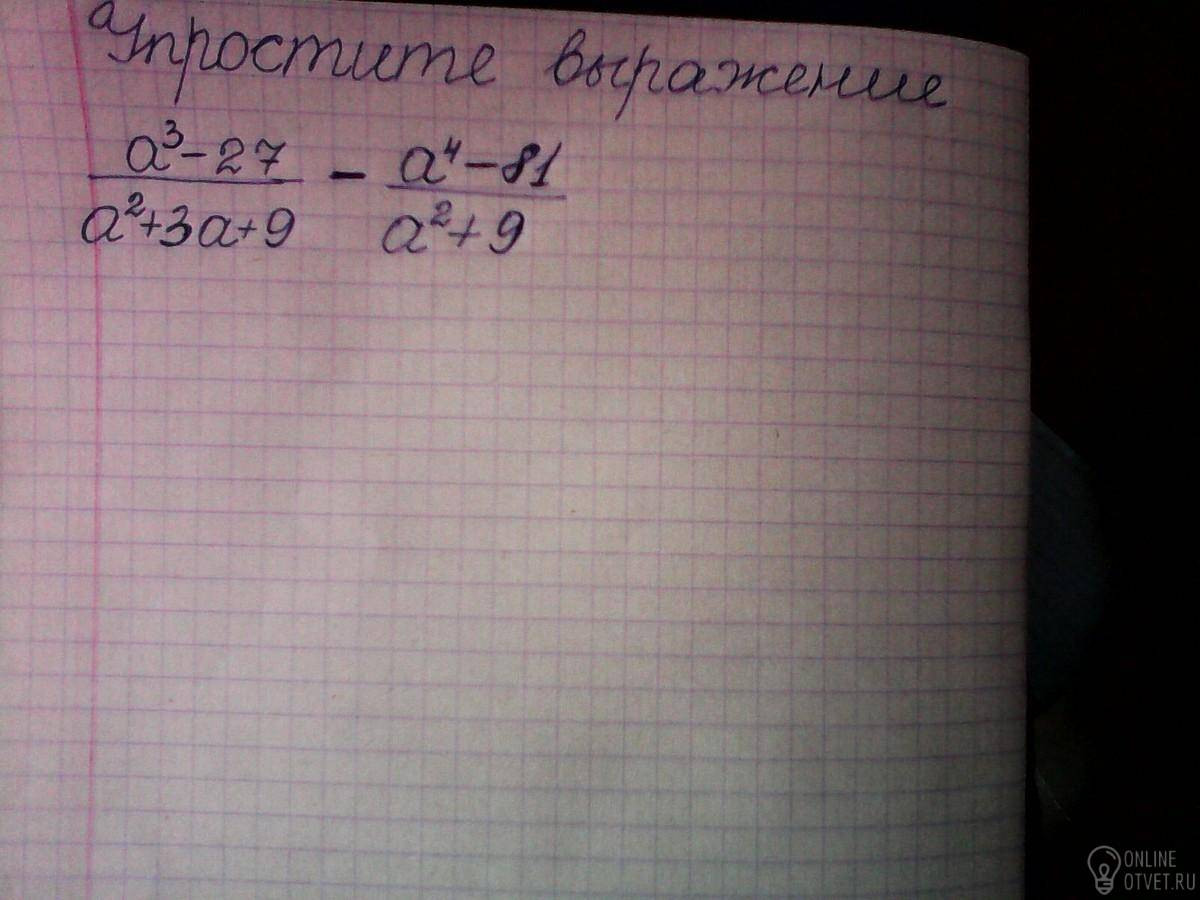 Упростите выражение
a³-27 / a²+3a+9 - a⁴-81 / a²+9
ONLINE
OTVET.RU